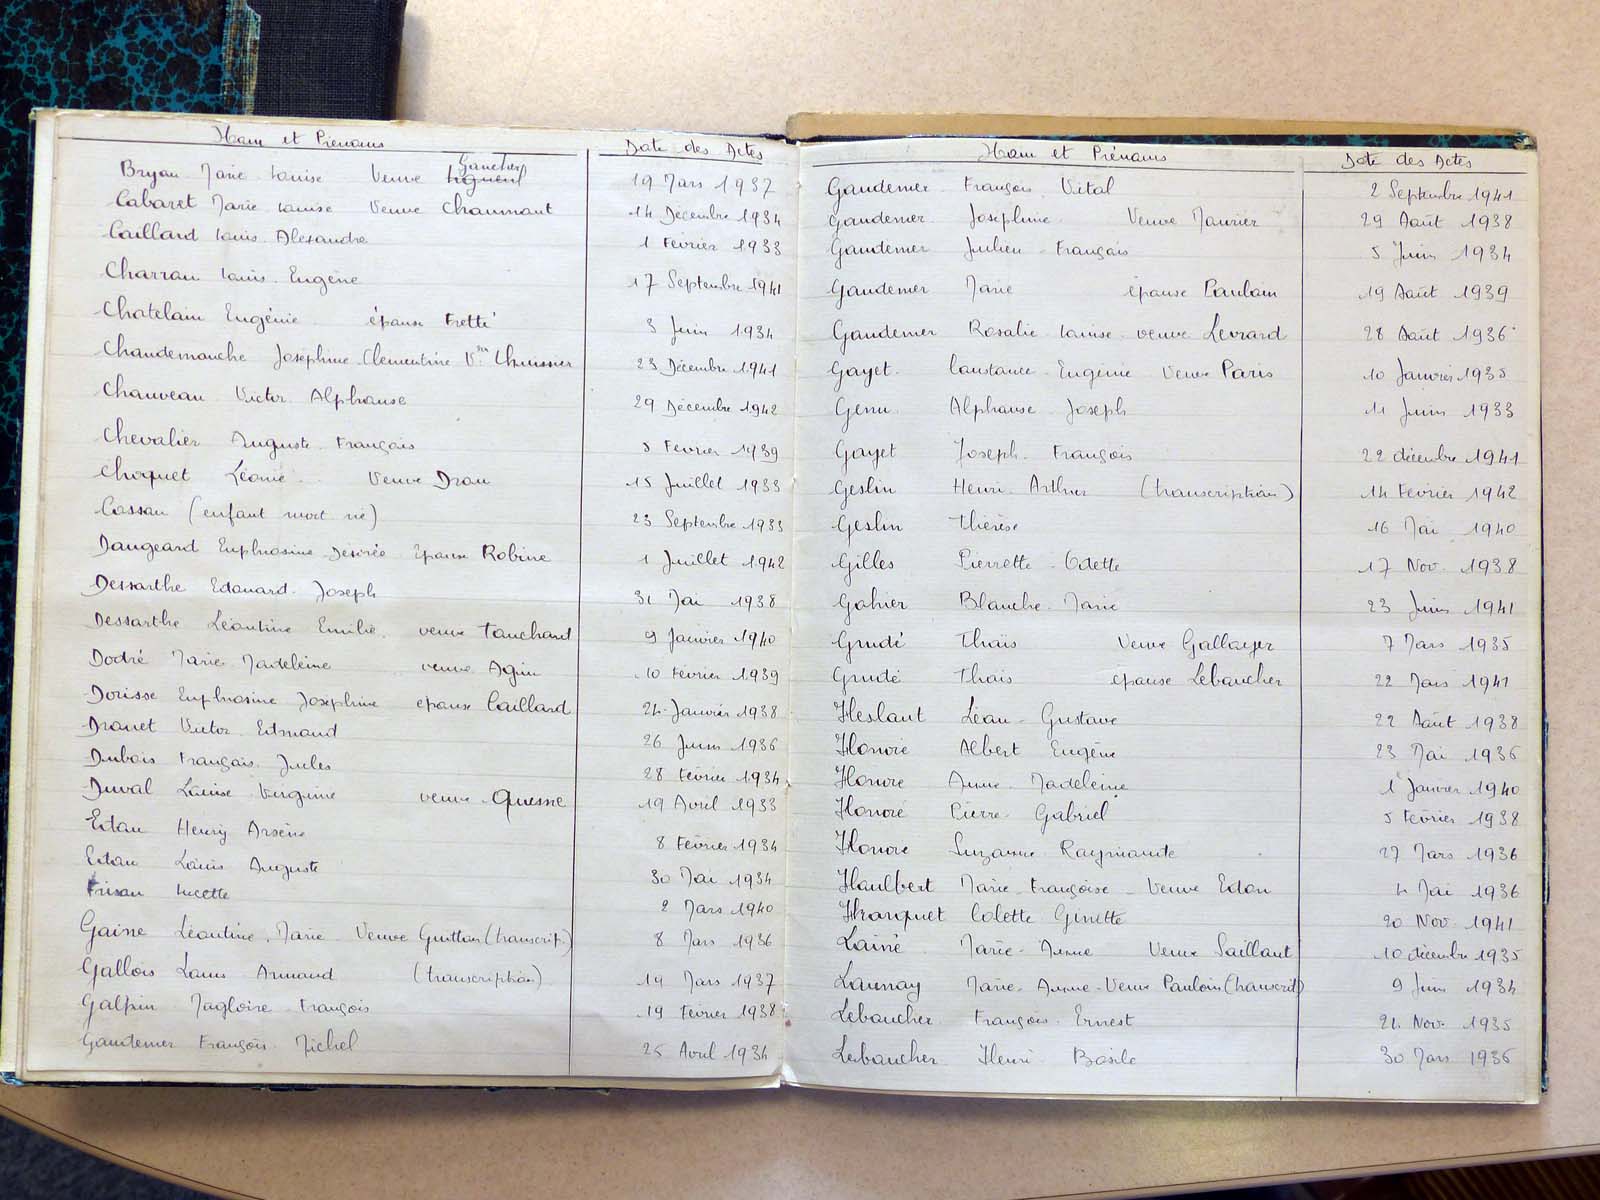 Nom et Prénoms Date des Actes
Bryon Marie Louise Veuve Gaucher 19 Mars 1937
Cabaret Marie Louise Veuve Chaumont 14 Décembre 1934
Caillard Louis Alexandre 1 Février 1933
Charron Louis Eugène 17 Septembre 1941
Chatelain Eugénie épouse Fretté 3 Juin 1934
Chaudemanche Joséphine Clementine Vve Lhuissier 23 Décembre 1941
Chauveau Victor Alphonse 29 Décembre 1942
Chevalier Auguste François 5 Février 1939
Choquet Léonie Veuve Drou 15 Juillet 1933
Cosson (enfant mort né) 23 Septembre 1933
Daugeard Euphrosine Désirée Epouse Robine 1 Juillet 1942
Dessarthe Edouard Joseph 31 Mai 1938
Dessarthe Léontine Emilie veuve Touchard 9 Janvier 1940
Dodré Marie Madeleine veuve Agin 10 Février 1939
Dorisse Euphrosine Joséphine épouse Caillard 24 Janvier 1938
Drouet Victor Edmond 26 Juin 1936
Dubois Français Jules 28 Février 1934
Duval Louise Virginie veuve Quesne 19 Avril 1933
Edon Henry Arsène 8 Février 1934
Edon Louis Auguste 30 Mai 1934
Frison Lucette 2 Mars 1940
Gaine Léontine Marie Veuve Guitton (transcrip.) 8 Mars 1936
Gallois Louis Armand (transcription) 19 Mars 1937
Galpin Magloire François 19 Février 1938
Gaudemer François Michel 25 Avril 1934
Nom et Prénoms Date des Actes
Gaudemer François Vital 2 Septembre 1941
Gaudemer Joséphine Veuve Maurier 29 Août 1938
Gaudemer Julien François 5 Juin 1934
Gaudemer Marie épouse Poulain 19 Août 1939
Gaudemer Rosalie Louise veuve Levrard 28 Août 1936
Gayet Constance Eugénie Veuve Paris 10 Janvier 1935
Genu Alphonse Joseph 11 Juin 1933
Gayet Joseph François 22 décembre 1941
Geslin Henri Arthur (transcription) 14 Février 1942
Geslin Thérèse 16 Mai 1940
Gilles Pierrette Odette 17 Nov. 1938
Gohier Blanche Marie 23 Juin 1941
Grudé Thaïs Veuve Galloyer 7 Mars 1935
Grudé Thaïs épouse Leboucher 22 Mars 1941
Heslaut Léon Gustave 22 Août 1938
Honoré Albert Eugène 23 Mai 1936
Honoré Anne Madeleine 1 Janvier 1940
Honoré Pierre Gabriel 5 Février 1938
Honoré Suzanne Raymonde 27 Mars 1936
Houlbert Marie Françoise Veuve Edon 4 Mai 1936
Hronquet Colette Ginette 20 Nov. 1941
Lainé Marie Anne Veuve Saillant 10 décembre 1935
Launay Marie Anne Veuve Paulouin (transcrit) 9 Juin 1934
Leboucher François Ernest 21 Nov. 1935
Leboucher Henri Basile 30 Mars 1936